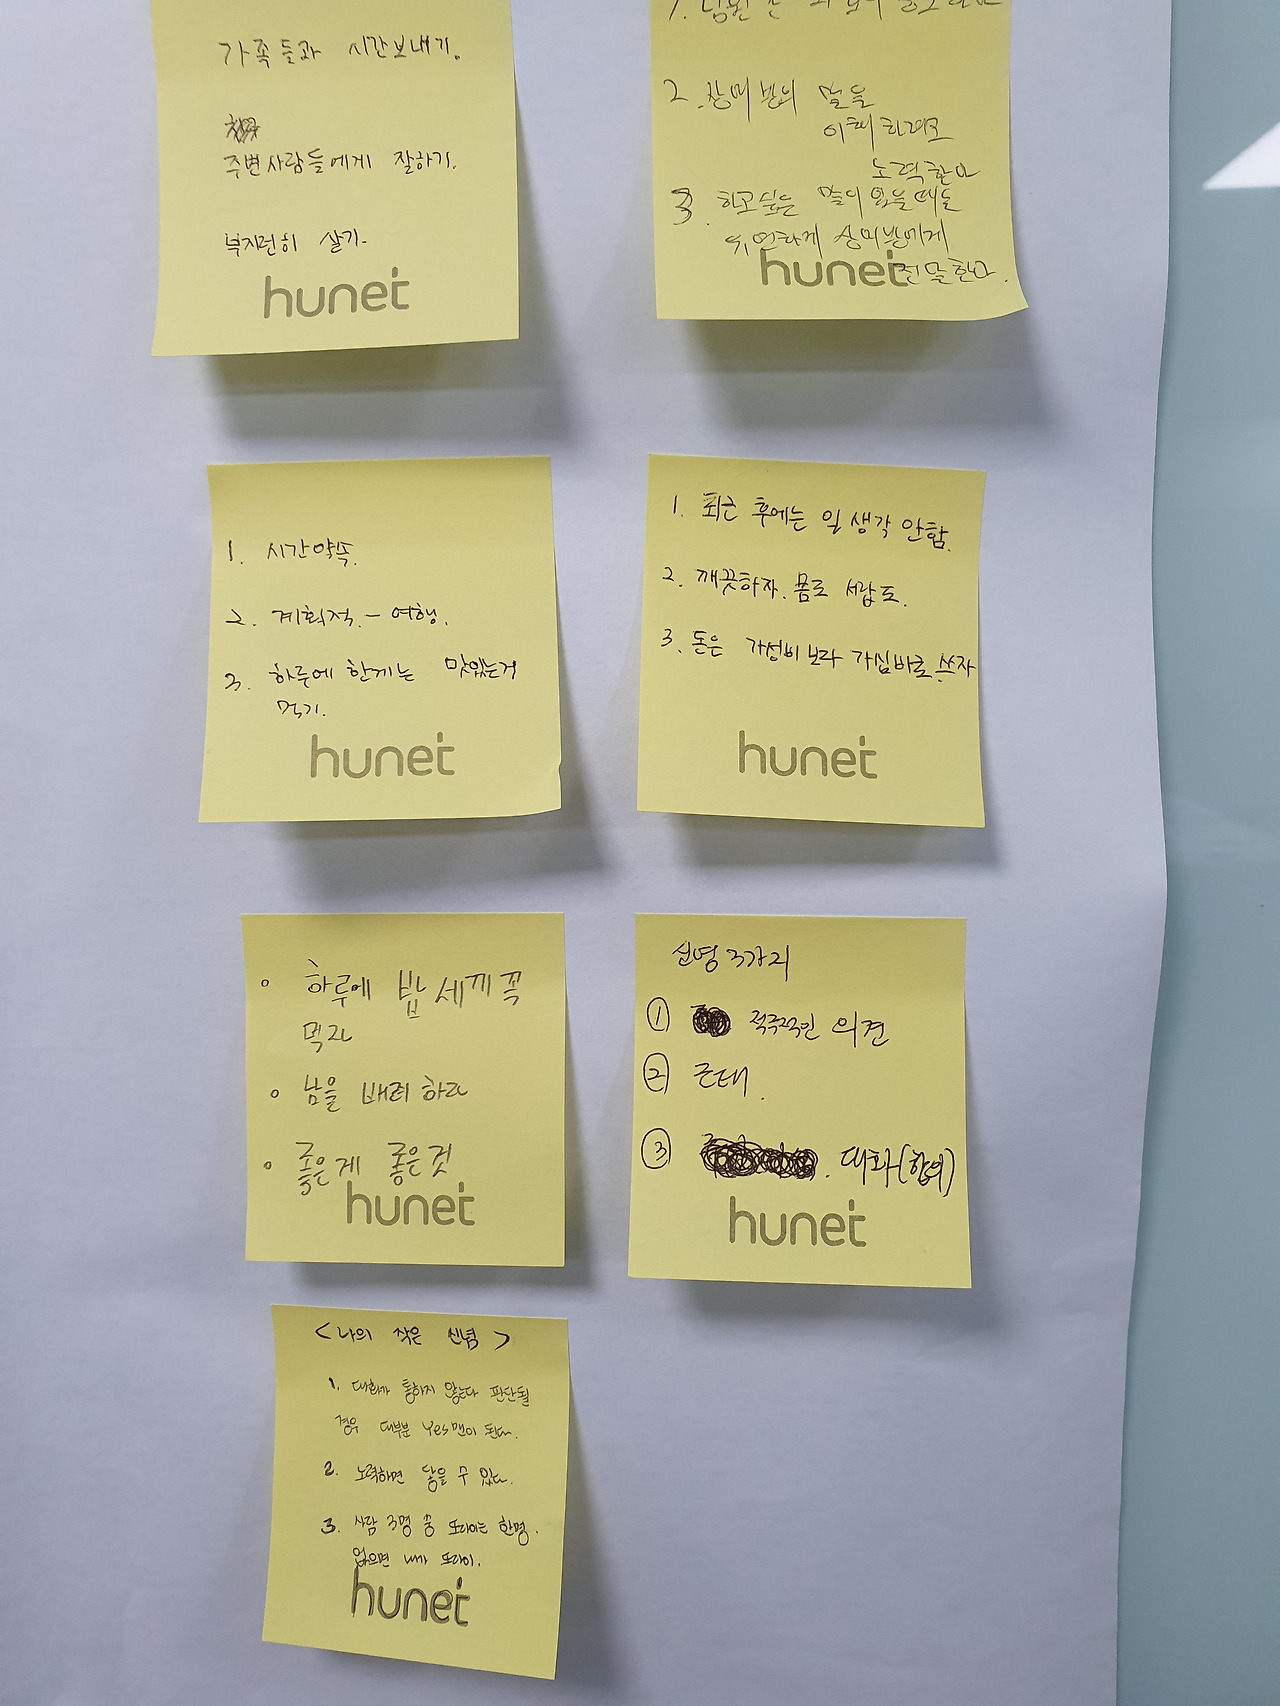 가족들과 시간보내기.
주변사람들에게 잘하기.
부지런히 살기.
hunet
1.
2. 상대방의 말을
이해하려고
노력한다
3. 하고싶은 말이 있을때는
유연하게 상대방에게
전달한다.
hunet
1. 시간약속.
2. 계획적. - 여행.
3. 하루에 한개는 맛있는거
먹기.
hunet
1. 퇴근 후에는 일 생각 안함.
2. 깨끗하자. 몸도 서랍도.
3. 돈은 가성비보다 가심비로 쓰자
hunet
• 하루에 밥 세끼 꼭
먹자
• 남을 배려 하라
• 좋은게 좋은것
hunet
신념 3가지
① 적극적인 의견
② 근태.
③ 대화(합의)
hunet
<나의 작은 신념>
1. 대화가 통하지 않는다 판단될
경우 대부분 Yes맨이 된다.
2. 노력하면 닿을 수 있다.
3. 사람 3명 중 또라이는 한명.
없으면 내가 또라이.
hunet